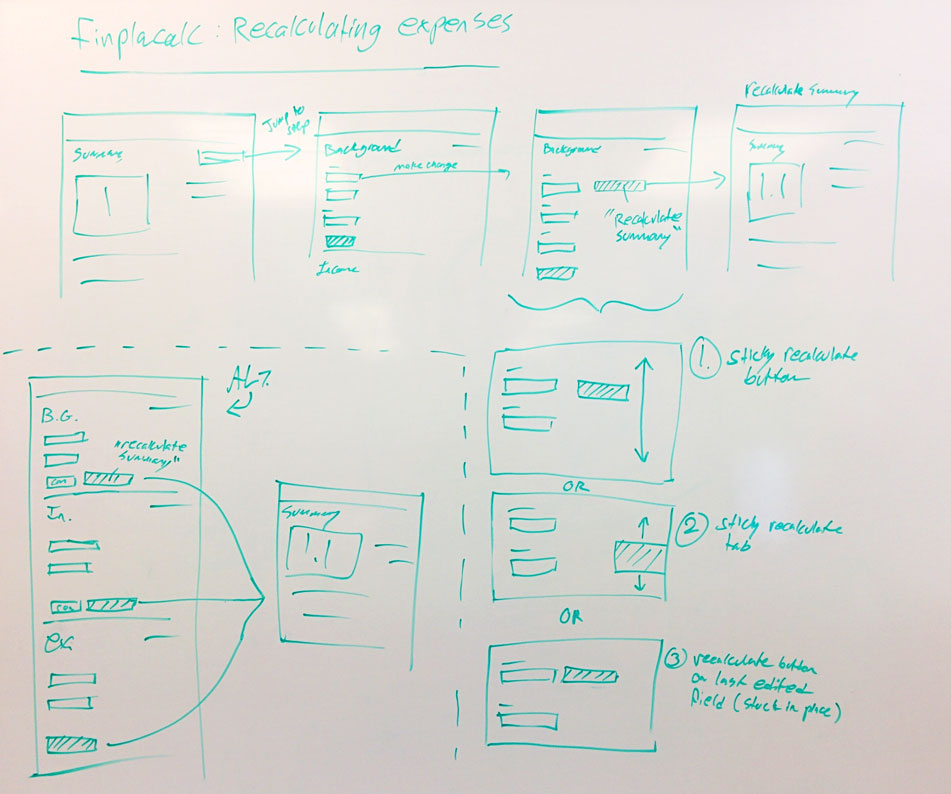 Finplacalc: Recalculating expenses
Summary
1
Jump to
step
Background
make change
Income
Background
"Recalculate
Summary"
recalculate summary
Summary
1.1
ALT.
B.G.
"recalculate
Summary"
con
In.
con
ex.
Summary
1.1
1. sticky recalculate
button
OR
2 sticky recalculate
tab
OR
3 recalculate button
on last edited
field (stuck in place)